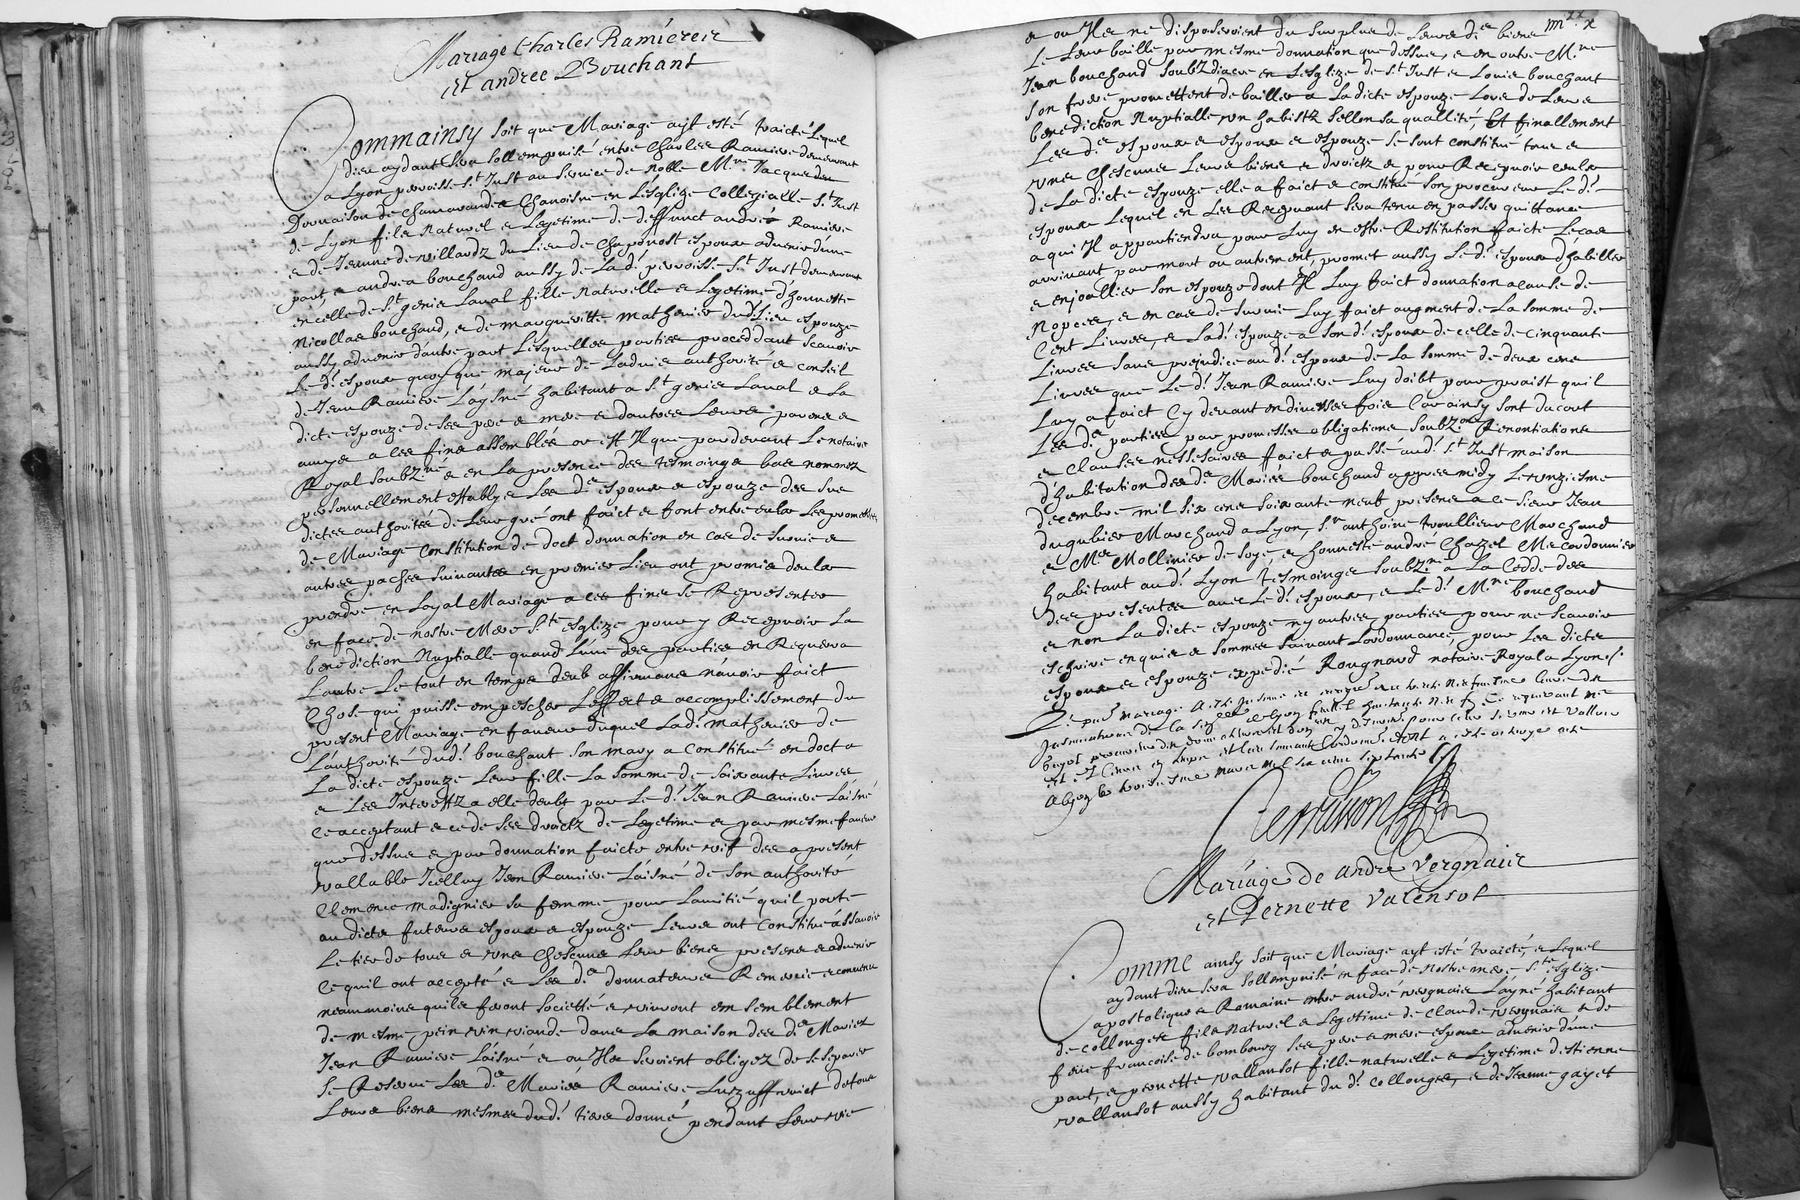 Mariage Charles Ramiereir
Et andree Bouchant
Commainsy soit que Mariage ayt esté traicté Lequel
dieu aydant sera sollempnisé entre Charles Ramiere demeurant
a Lyon perroisse St Just au service de Noble Mre Jacques du
Dournaison de Chamarandes Chanoine en L'esglize Collegialle St Just
de Lyon fils Naturel et Legetime de deffunct andre Ramiere
et de Jeanne de villardz du Lieu de Chaponost espoux advenir d'une
part, et andrea bouchand aussy de La d. perroisse St Just demeurant
en celle de St genis Laval fille Naturelle et Legetime d'honneste
Nicollas bouchand, et de margueritte mathevier dud. Lieu espouze
aussy advenir d'autre part Lesquelles parties proceddant scauoir
Le d. espoux quoyque majeur de Ladvis authorité et conseil
de Jean Ramiere Laysné habitant a St genis Laval et La
dicte espouze de ses pere et mere et d'autres Leurs parens et
amys a ces fins assemblés or est Il que pardevant Le notaire
Royal soubzné et en La presence des tesmoings bas nommez
personnellement establys Les ds espoux et espouze des sus
dictes authorités de Leur gré ont faict et font entre eulx Les promesses
de Mariage Constitution de doct donnation en cas de survie et
autres paches suivantes en premier Lieu ont promis de eulx
prendre en Loyal Mariage a ces fins se Representer
en face de nostre Mere Ste esglize pour y Recepvoir La
benediction Nuptialle quand L'une des parties en Requerra
L'autre Le tout en temps deub affirmans n'avoir faict
Chose qui puisse empescher L'effect et accomplissement du
present Mariage en faveur duquel Lad. mathevier de
L'authorité dud. bouchant son mary a Constitué en doct a
La dicte espouze Leur fille La somme de soixante Livres
et Les Interestz a elle deubt par Le d. Jean Ramiere Laisné
Ce acceptant et ce de ses droictz de Legetime et par mesme faveur
que dessus et par donnation faicte entre vifs des a present
vallable Icelluy Jean Ramiere Laisné de son authorité
Clemence madignier sa femme pour L'amitié qu'il porte
au dicts futurs espoux et espouze Leurs ont Constitué a ssavoir
Le tiers de tous et uns Chescuns Leurs biens presens et advenir
Ce quil ont accepté et Les ds donnateurs Remercié et convenu
neanmoins qu'ils feront societté et vivront emsemblement
de mesme pein vin viande dans La maison des ds Mariez
Jean Ramiere Laisné et ou Ils seroient obligez de se separer
se Reserve Les ds Mariés Ramiere Luzuffruict de tous
Leurs biens mesmes dud. tiers donné, pendant Leur vie
et ou Ils ne disposeroient du surplus de Leurs ds biens
Le Leur baille par mesme donnation que dessus, et en outre Mre
Jean bouchand soubzdiacre en L'esglize de St Just et Louis bouchant
son frere promettent de bailler a La dicte espouze Lors de Leur
benediction Nuptialle, un habistz sellon sa quallité, Et finallement
Les ds espoux et espouze se sont constitué tous et
uns Chescuns Leurs biens et droictz et pour Recepvoir ceulx
de La dicte espouze elle a faict et constitué son procureur Le d.
espoux Lequel en Les Recepvant sera tenu en passer quittance
a qui Il appartiendra pour Luy en estre Restitution faicte Le cas
arrivant par mort ou autrement, promet aussy Le d. espoux d'habiller
et enjoallier son espouze dont Il Luy faict donnation a cause de
Nopces, et en cas de survie Luy faict augment de La somme de
Cent Livres, et Lad. espouze a son d. espoux de celle de Cinquante
Livres sans prejudice au d. espoux de La somme de deux cens
Livres que Le d. Jean Ramiere Luy doibt pour praist quil
Luy a faict Cy devant en diverses fois Car ainsy sont dacort
Les ds parties par promesses obligations soubzons Renontiations
et Clauses nessesaires faict et passé aud. St Just maison
d'habitation des ds Mariés bouchand appres midy Le unziesme
decembre mil six cens soixante neuf presens a ce sieur Jean
dugubier Marchand a Lyon, sr anthoine troullieur Marchand
et Mre Mollinier de soye, et honneste andré Chazel Me Cordonnier
habitant aud. Lyon tesmoings soubznes a La Cedde des
des presentes avec Le d. espoux, et Le d. Mre bouchand
et non La dicte espouze ny autres parties pour ne scavoir
escrire enquis et sommés suivant L'ordonnance, pour Les dicts
espoux et espouze expedié Rougnard notaire Royal a Lyon
Mariage de andre Vergnaiz
Et Pernette Valensot
Comme ainsy soit que Mariage ayt esté traicté, et Lequel
aydant dieu sera sollempnisé en face de Nostre mere, Ste esglize
apostolique et Romaine entre andré vergnais Layné habitant
de collonges fils Naturel et Legetime de Claude vergnais et de
feue francoise de bombourg ses pere et mere espoux advenir d'une
part, et pernette vallansot fille naturelle et Legetime d'estienne
vallansot aussy habitant du d. Collonges, et de Jeanne gayet